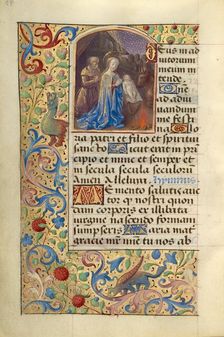 Deus in ad
iutorium
meum inten
de
Domine
ad adiuvandum
me festina
Gloria patri et filio et spiritui
sancto Sicut erat in prin
cipio et nunc et semper et
in secula seculorum
Amen Alleluia Hymnus
Memento salutis auctor
quod nostri quondam
corporis ex illibata
virgine nascendo formam
sumpseris Maria mater
gracie mater tu nos ab